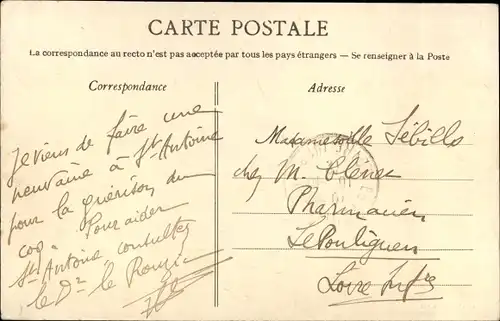 CARTE POSTALE
La correspondance au recto n'est pas acceptée par tous les pays étrangers — Se renseigner à la Poste
Correspondance
Adresse
Je viens de faire une
neuvaine à St Antoine
pour la guérison du
coq. Pour aider
St Antoine consultez
le Dr le Rouzic
Mademoiselle Sébillo
chez M. Clénet
Pharmacien
Le Pouliguen
Loire Infre